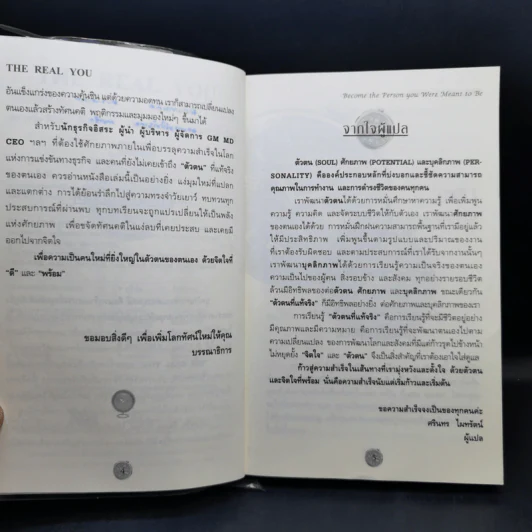 THE REAL YOU
อันแข็งแกร่งของความคุ้นชิน แต่ด้วยความอดทน เราก็สามารถเปลี่ยนแปลง
ตนเองแล้วสร้างทัศนคติ พฤติกรรมและมุมมองใหม่ๆ ขึ้นมาได้
สำหรับนักธุรกิจอิสระ ผู้นำ ผู้บริหาร ผู้จัดการ GM MD
CEO ฯลฯ ที่ต้องใช้ศักยภาพภายในเพื่อบรรลุความสำเร็จในโลก
แห่งการแข่งขันทางธุรกิจ และคนที่ยังไม่เคยเข้าถึง "ตัวตน" ที่แท้จริง
ของตนเอง ควรอ่านหนังสือเล่มนี้เป็นอย่างยิ่ง แง่มุมใหม่ที่แปลก
และแตกต่าง การได้ย้อนรำลึกไปสู่ความทรงจำวัยเยาว์ ทบทวนทุก
ประสบการณ์ที่ผ่านพบ ทุกบทเรียนจะถูกแปรเปลี่ยนให้เป็นพลัง
แห่งศักยภาพ เพื่อขจัดทัศนคติในแง่ลบที่เคยประสบ และเคยมี
ออกไปจากจิตใจ
เพื่อความเป็นคนใหม่ที่ยิ่งใหญ่ในตัวตนของตนเอง ด้วยจิตใจที่
"ดี" และ "พร้อม"
ขอมอบสิ่งดีๆ เพื่อเพิ่มโลกทัศน์ใหม่ให้คุณ
บรรณาธิการ
4
Become the Person you Were Meant to Be
จากใจผู้แปล
ตัวตน (SOUL) ศักยภาพ (POTENTIAL) และบุคลิกภาพ (PER-
SONALITY) คือองค์ประกอบหลักที่บ่งบอกและชี้ชัดความสามารถ
คุณภาพในการทำงาน และการดำรงชีวิตของคนทุกคน
เราพัฒนาตัวตนได้ด้วยการหมั่นศึกษาหาความรู้ เพื่อเพิ่มพูน
ความรู้ ความคิด และจัดระบบชีวิตให้กับตัวเอง เราพัฒนาศักยภาพ
ของตนเองได้ด้วย การหมั่นฝึกฝนความสามารถพื้นฐานที่เรามีอยู่แล้ว
ให้มีประสิทธิภาพ เพิ่มพูนขึ้นตามรูปแบบและปริมาณของงาน
ที่เราต้องรับผิดชอบ และตามประสบการณ์ที่เราได้รับจากงานนั้นๆ
เราพัฒนาบุคลิกภาพได้ด้วยการเรียนรู้ความเป็นจริงของตนเอง
ความเป็นไปของผู้คน สิ่งรอบข้าง และสังคม ทุกอย่างรายรอบชีวิต
ล้วนมีอิทธิพลของต่อตัวตน ศักยภาพ และบุคลิกภาพ ขณะเดียวกัน
"ตัวตนที่แท้จริง" ก็มีอิทธิพลอย่างยิ่ง ต่อศักยภาพและบุคลิกภาพของเรา
การเรียนรู้ "ตัวตนที่แท้จริง" คือการเรียนรู้ที่จะมีชีวิตอยู่อย่าง
มีคุณภาพและมีความหมาย คือการเรียนรู้ที่จะพัฒนาตนเองไปตาม
ความเปลี่ยนแปลง ของการพัฒนาโลกและสังคมที่มีแต่ก้าวรุดไปข้างหน้า
ไม่หยุดยั้ง "จิตใจ" และ "ตัวตน" จึงเป็นสิ่งสำคัญที่เราต้องเอาใจใส่ดูแล
ก้าวสู่ความสำเร็จในเส้นทางที่เรามุ่งหวังและตั้งใจ ด้วยตัวตน
และจิตใจที่พร้อม นั่นคือความสำเร็จนับแต่เริ่มก้าวและเริ่มต้น
ขอความสำเร็จจงเป็นของทุกคนค่ะ
ศรินทร ไมทรัตน์
ผู้แปล
5